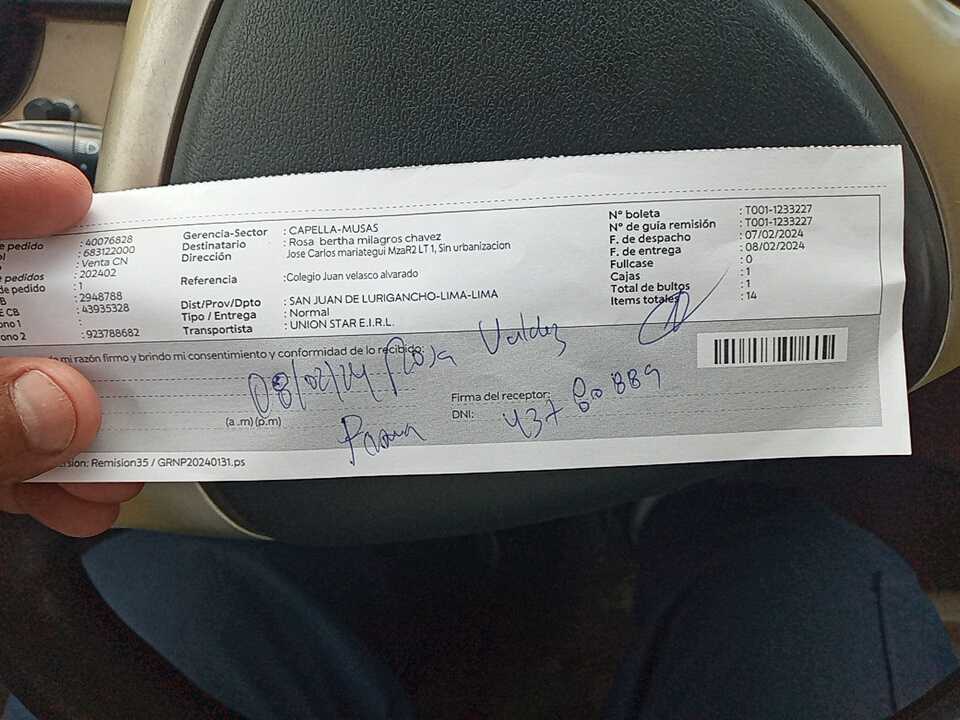 e pedido : 40076828
ol : 683122000
: Venta CN
e pedidos : 202402
de pedido : 1
B : 2948788
E CB : 43935328
ono 1 :
ono 2 : 923788682
Gerencia-Sector : CAPELLA-MUSAS
Destinatario : Rosa bertha milagros chavez
Dirección : Jose Carlos mariategui MzaR2 LT 1, Sin urbanizacion
Referencia : Colegio Juan velasco alvarado
Dist/Prov/Dpto : SAN JUAN DE LURIGANCHO-LIMA-LIMA
Tipo / Entrega : Normal
Transportista : UNION STAR E.I.R.L.
N° boleta : T001-1233227
N° de guía remisión : T001-1233227
F. de despacho : 07/02/2024
F. de entrega : 08/02/2024
Fullcase : 0
Cajas : 1
Total de bultos : 1
Items totales : 14
de mi razón firmo y brindo mi consentimiento y conformidad de lo recibido:
08/02/24 Rosa Valdez
(a .m) (p.m)
Firma del receptor:
DNI: 43780889
ersión: Remision35 / GRNP20240131.ps